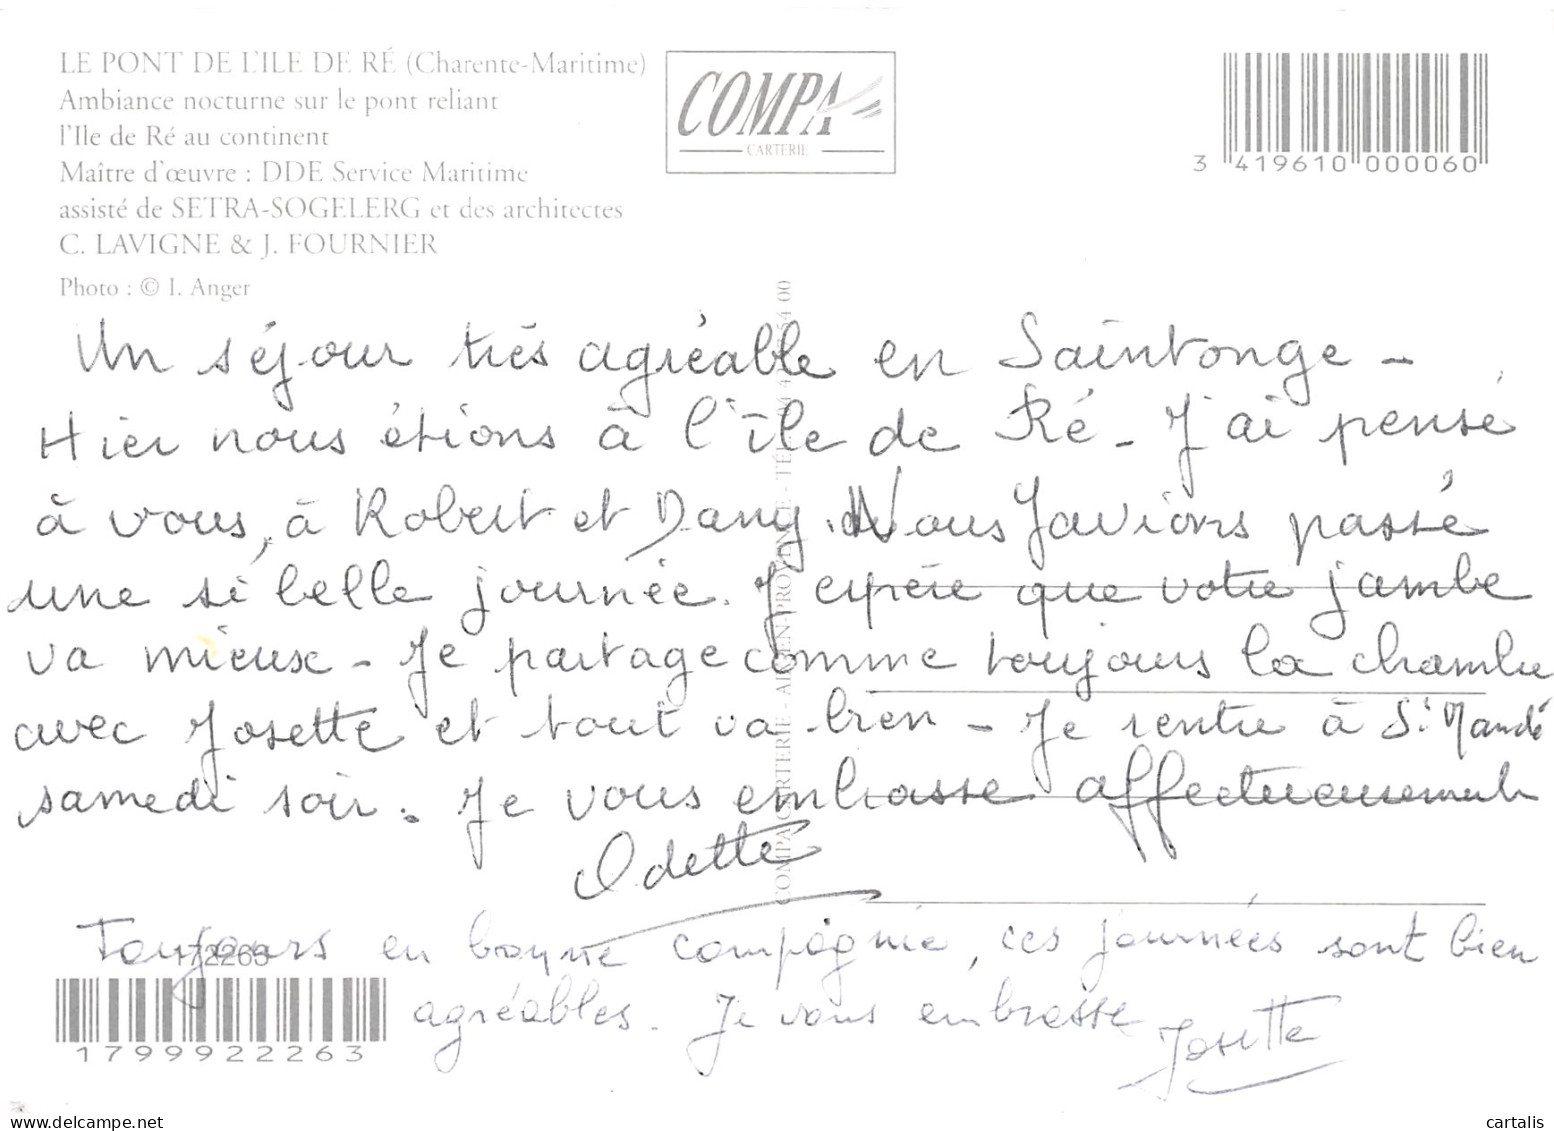 LE PONT DE L'ILE DE RÉ (Charente-Maritime)
Ambiance nocturne sur le pont reliant
l'Ile de Ré au continent
Maître d'œuvre : DDE Service Maritime
assisté de SETRA-SOGELERG et des architectes
C. LAVIGNE & J. FOURNIER
Photo : © I. Anger
COMPA
CARTERIE
3 419610 000060
Un séjour très agréable en Saintonge -
Hier nous étions à l'île de Ré - J'ai pensé
à vous, à Robert et Dany. Nous y avions passé
une si belle journée. J'espère que votre jambe
va mieux - Je partage comme toujours la chambre
avec Josette et tout va bien - Je rentre à St Mandé
samedi soir. Je vous embrasse affectueusement
Odette
Toujours en bonne compagnie, ces journées sont bien
agréables. Je vous embrasse
Josette
COMPA CARTERIE - AIX-EN-PROVENCE - TÉL.
172263
1799922263
www.delcampe.net
cartalis